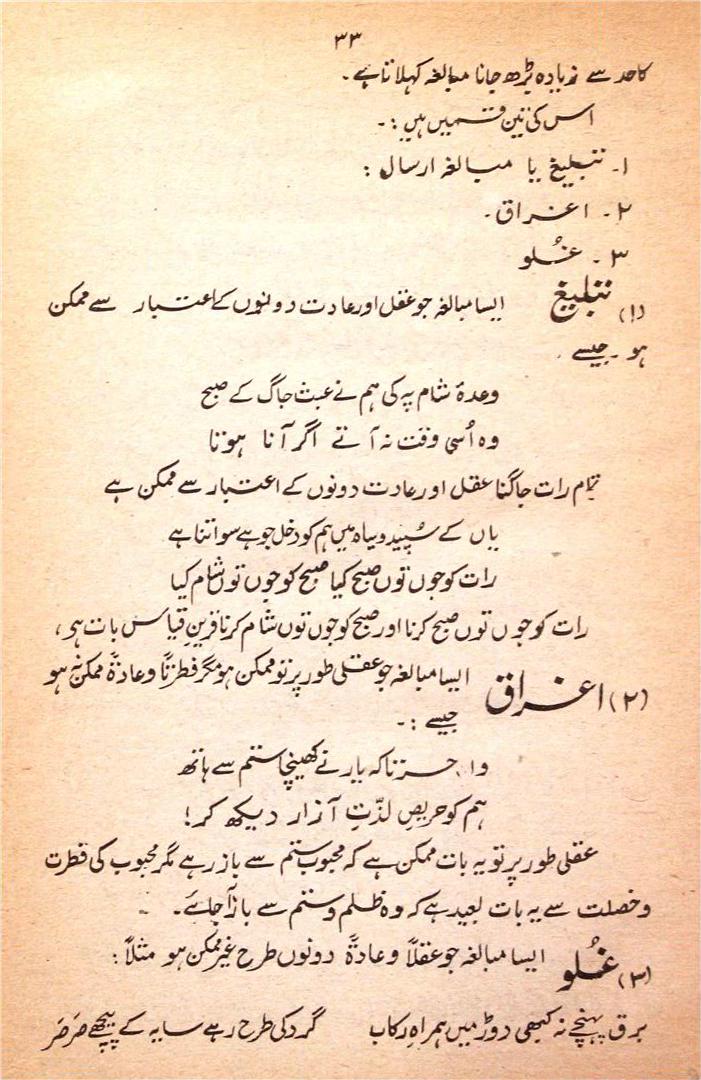 ۳۳
کا حد سے زیادہ بڑھ جانا مبالغہ کہلاتا ہے۔
اس کی تین قسمیں ہیں :۔
۱۔ تبلیغ یا مبالغہ ارسال :
۲۔ اغراق۔
۳۔ غُلو
(۱) تبلیغ ایسا مبالغہ جو عقل اور عادت دونوں کے اعتبار سے ممکن
ہو۔ جیسے
وعدۂ شام پہ کی ہم نے عبث جاگ کے صبح
وہ اُسی وقت نہ آتے اگر آنا ہوتا
تمام رات جاگنا عقل اور عادت دونوں کے اعتبار سے ممکن ہے
یاں کے سُپید و سیاہ میں ہم کو دخل جو ہے سو اتنا ہے
رات کو جوں توں صبح کیا صبح کو جوں توں شام کیا
رات کو جوں توں صبح کرنا اور صبح کو جوں توں شام کرنا قرینِ قیاس بات ہی،
(۲) اغراق ایسا مبالغہ جو عقلی طور پر تو ممکن ہو مگر فطرتًا و عادۃً ممکن نہ ہو
جیسے :۔
وا حسرتا کہ یار نے کھینچا ستم سے ہاتھ
ہم کو حریصِ لذّتِ آزار دیکھ کر!
عقلی طور پر تو یہ بات ممکن ہے کہ محبوب ستم سے باز رہے مگر محبوب کی فطرت
و خصلت سے یہ بات بعید ہے کہ وہ ظلم و ستم سے باز آجائے۔
(۳) غُلو ایسا مبالغہ جو عقلاً و عادۃً دونوں طرح غیر ممکن ہو مثلاً :
برق پہنچے نہ کبھی دوڑ میں ہمراہِ رکاب گرد کی طرح رہے سایہ کے پیچھے صَرصَر